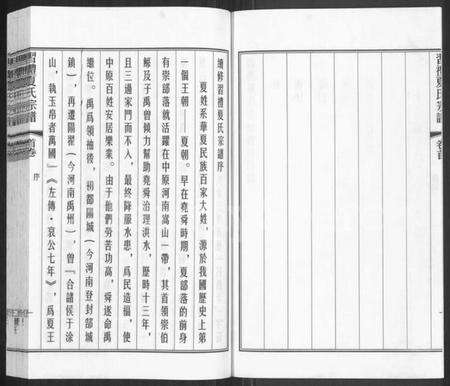 習禮夏氏宗譜
卷首
續修習禮夏氏宗譜序
夏姓系華夏民族百家大姓,源於我國歷史上第
一個王朝——夏朝。早在堯舜時期,夏部落的前身
有崇部落就活躍在中原河南嵩山一帶,其首領崇伯
鯀及子禹曾傾力幫助堯舜治理洪水,歷時十三年,
且三過家門而不入,最終降服水患,爲民造福,使
中原百姓安居樂業。由于他們勞苦功高,舜遂命禹
繼位。禹爲領袖後,初都陽城(今河南登封部城
鎮),再遷陽翟(今河南禹州),曾『合諸侯于涂
山,執玉帛者萬國』《左傳·哀公七年》,爲夏王
習禮夏氏宗譜
首卷
序